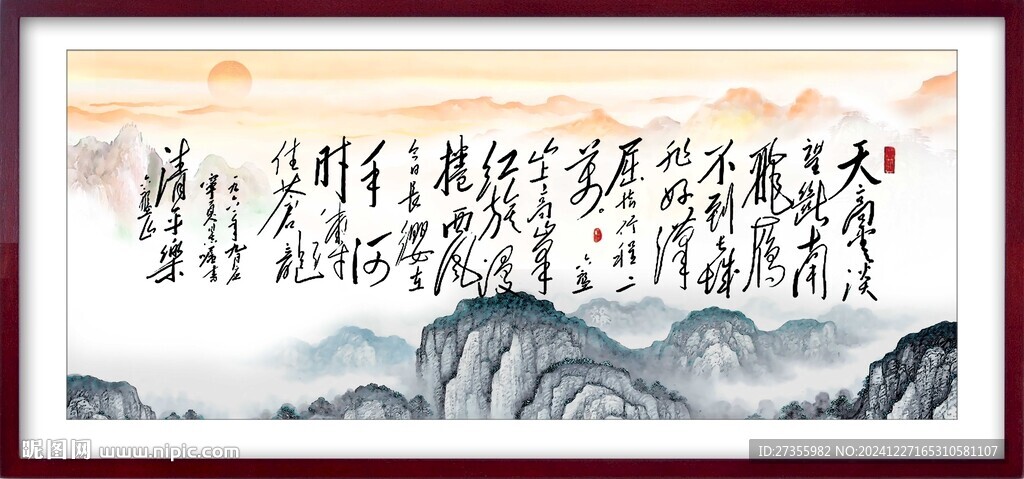 天高雲淡
望斷南
飛鴈
不到長城
非好漢
屈指行程二
萬。六盤
山上高峯
紅旗漫
捲西風
今日長纓在
手何
時縛
住蒼龍
一九六一年九月應
寧夏同志囑書
清平樂
六盤山
昵图网 www.nipic.com
ID:27355982 NO:20241227165310581107